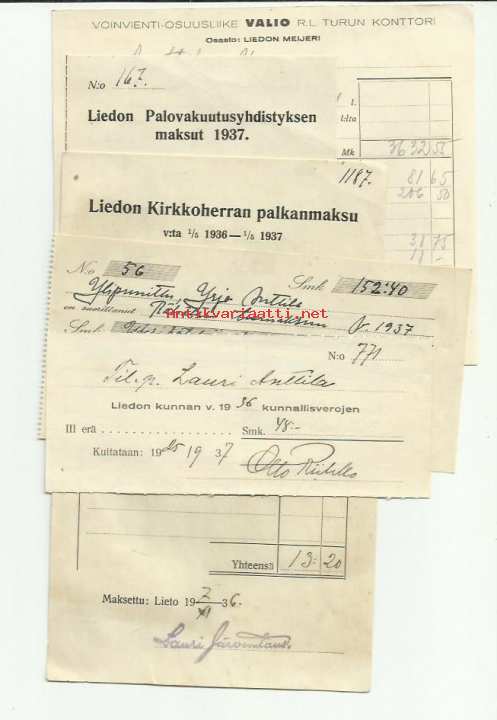 VOINVIENTI-OSUUSLIIKE VALIO R.L. TURUN KONTTORI
Osasto: LIEDON MEIJERI
N:o 167.
Liedon Palovakuutusyhdistyksen
maksut 1937.
l.
l:lta
Mk 3632 55
1187. 81 65
206 50
Liedon Kirkkoherran palkanmaksu
v:ta 1/5 1936 — 1/5 1937
31 75
11 -
No 56 Smk. 152:40
Yrjö Anttila
on suorittanut v. 1937
Smk.
antikvariaatti.net
N:o 771
Til. p. Lauri Anttila
Liedon kunnan v. 1936 kunnallisverojen
III erä Smk. 48:-
Kuitataan: 19 37
Otto
Yhteensä 13:20
Maksettu: Lieto 19 36.
Lauri